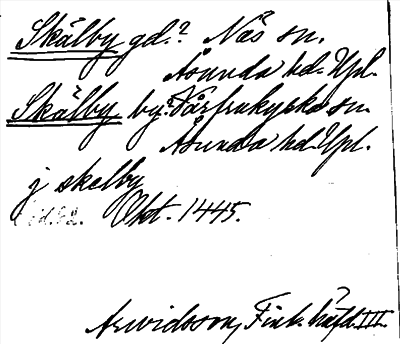 Skälby gd.? Näs sn.
Åsunda hd. Upl.
Skälby by? Vårfrukyrka sn.
Åsunda hd. Upl.
j skelby
Okt. 1445.
Arwidsson, Finl. häfd. III.